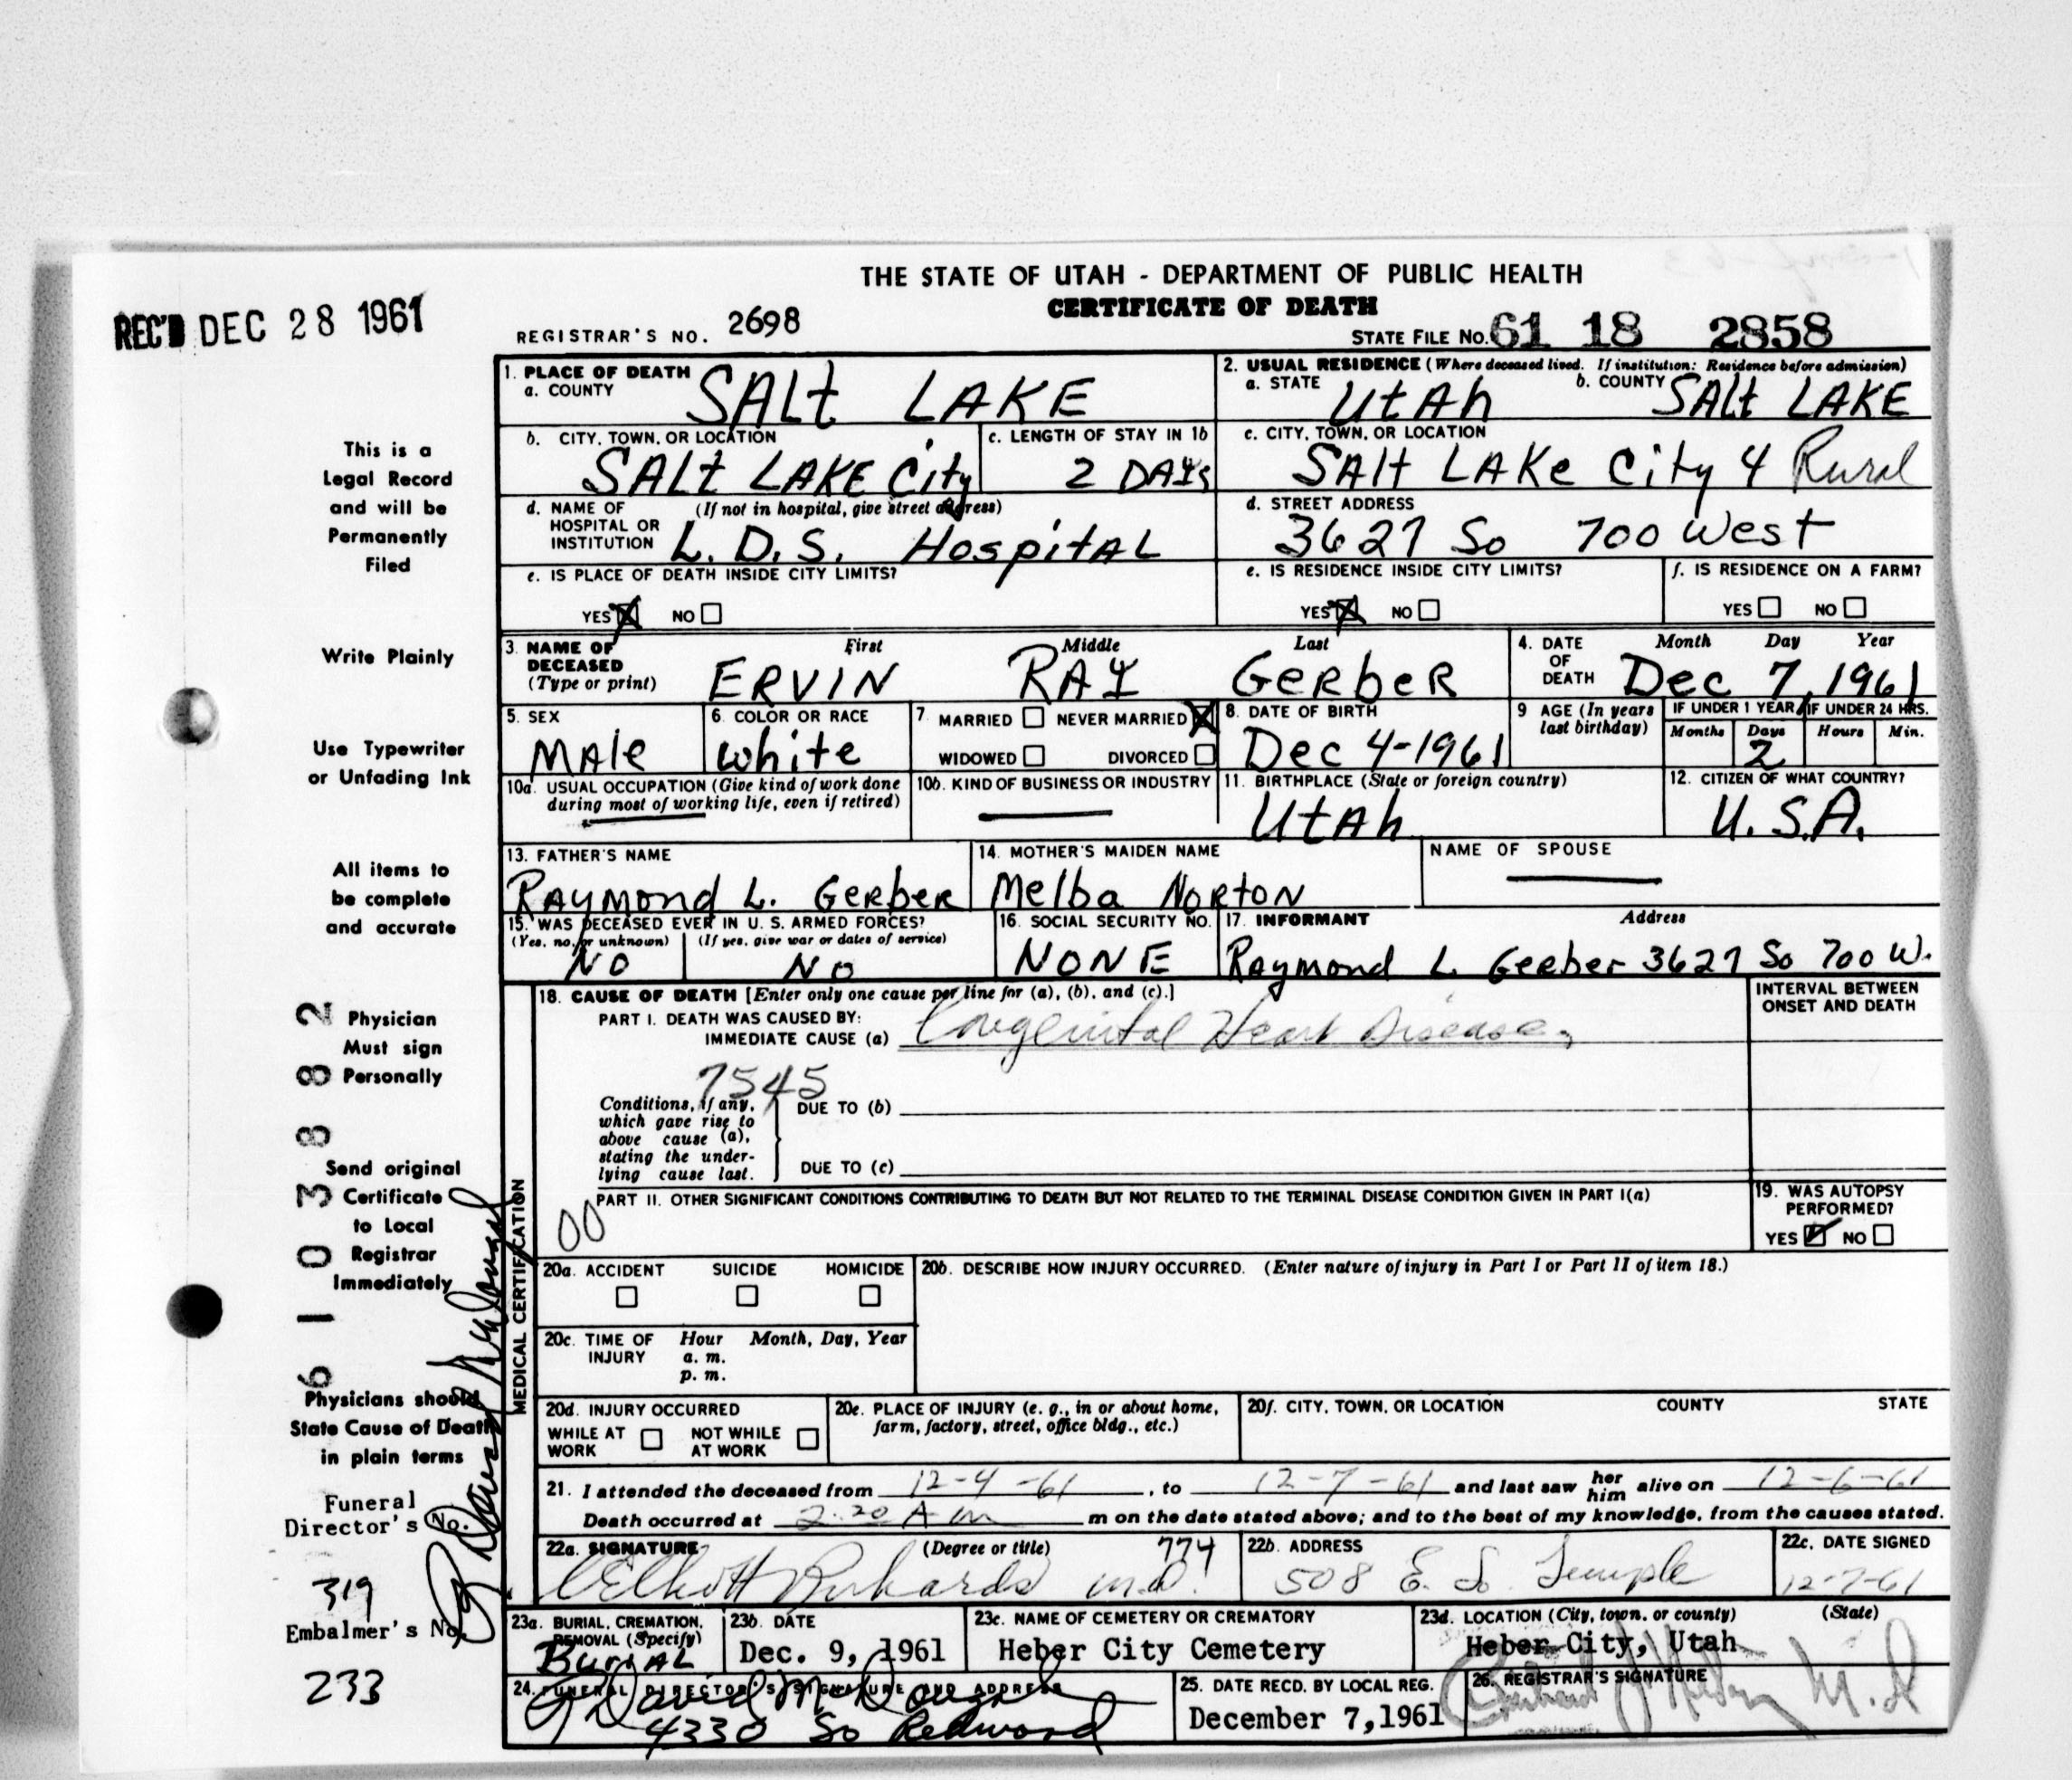 THE STATE OF UTAH - DEPARTMENT OF PUBLIC HEALTH
CERTIFICATE OF DEATH
REC'D DEC 28 1961
REGISTRAR'S NO. 2698
STATE FILE NO. 61 18 2858
1. PLACE OF DEATH
a. COUNTY SALt LAKE
2. USUAL RESIDENCE (Where deceased lived. If institution: Residence before admission)
a. STATE UtAh b. COUNTY SALt LAKE
b. CITY, TOWN, OR LOCATION SALt LAKE City
c. LENGTH OF STAY IN 1b 2 DAYs
c. CITY, TOWN, OR LOCATION SAlt LAKe City 4 Rural
d. NAME OF HOSPITAL OR INSTITUTION (If not in hospital, give street address) L.D.S. HospitAL
d. STREET ADDRESS 3627 So 700 West
e. IS PLACE OF DEATH INSIDE CITY LIMITS?
YES X NO
e. IS RESIDENCE INSIDE CITY LIMITS?
YES X NO
f. IS RESIDENCE ON A FARM?
YES NO
3. NAME OF DECEASED (Type or print)
First Middle Last
ERVIN RAY GerbeR
4. DATE OF DEATH Month Day Year
Dec 7, 1961
5. SEX MAle
6. COLOR OR RACE white
7 MARRIED NEVER MARRIED X
WIDOWED DIVORCED
8. DATE OF BIRTH Dec 4-1961
9 AGE (In years last birthday)
IF UNDER 1 YEAR IF UNDER 24 HRS.
Months Days Hours Min.
2
10a. USUAL OCCUPATION (Give kind of work done during most of working life, even if retired)
10b. KIND OF BUSINESS OR INDUSTRY
11. BIRTHPLACE (State or foreign country) UtAh
12. CITIZEN OF WHAT COUNTRY? U.S.A.
13. FATHER'S NAME RAYMond L. GerbeR
14. MOTHER'S MAIDEN NAME Melba NoRtoN
NAME OF SPOUSE
15. WAS DECEASED EVER IN U. S. ARMED FORCES?
(Yes, no, or unknown) (If yes, give war or dates of service)
No No
16. SOCIAL SECURITY NO. NONE
17. INFORMANT Address
Raymond L. Gerber 3627 So 700 W.
18. CAUSE OF DEATH [Enter only one cause per line for (a), (b), and (c).]
INTERVAL BETWEEN ONSET AND DEATH
PART I. DEATH WAS CAUSED BY:
IMMEDIATE CAUSE (a) Congenital Heart Disease
7545
Conditions, if any, which gave rise to above cause (a), stating the underlying cause last.
DUE TO (b)
DUE TO (c)
PART II. OTHER SIGNIFICANT CONDITIONS CONTRIBUTING TO DEATH BUT NOT RELATED TO THE TERMINAL DISEASE CONDITION GIVEN IN PART I(a)
00
19. WAS AUTOPSY PERFORMED?
YES NO
MEDICAL CERTIFICATION
20a. ACCIDENT SUICIDE HOMICIDE
20b. DESCRIBE HOW INJURY OCCURRED. (Enter nature of injury in Part I or Part II of item 18.)
20c. TIME OF INJURY Hour Month, Day, Year
a. m.
p. m.
20d. INJURY OCCURRED
WHILE AT WORK NOT WHILE AT WORK
20e. PLACE OF INJURY (e. g., in or about home, farm, factory, street, office bldg., etc.)
20f. CITY, TOWN, OR LOCATION COUNTY STATE
21. I attended the deceased from 12-4-61, to 12-7-61 and last saw her him alive on 12-6-61
Death occurred at 2:20 A m m on the date stated above; and to the best of my knowledge, from the causes stated.
22a. SIGNATURE (Degree or title) 774
Elliott Richards M.D.
22b. ADDRESS 508 E. So. Temple
22c. DATE SIGNED 12-7-61
23a. BURIAL, CREMATION, REMOVAL (Specify) BuriAL
23b. DATE Dec. 9, 1961
23c. NAME OF CEMETERY OR CREMATORY Heber City Cemetery
23d. LOCATION (City, town, or county) (State) Heber City, Utah
24. FUNERAL DIRECTOR'S SIGNATURE AND ADDRESS
G David McDougal
4330 So Redwood
25. DATE RECD. BY LOCAL REG. December 7, 1961
26. REGISTRAR'S SIGNATURE
M.D
This is a
Legal Record
and will be
Permanently
Filed
Write Plainly
Use Typewriter
or Unfading Ink
All items to
be complete
and accurate
Physician
Must sign
Personally
Send original
Certificate
to Local
Registrar
Immediately
Physicians should
State Cause of Death
in plain terms
Funeral
Director's No.
319
Embalmer's No.
233
61 03882
G David McDougal